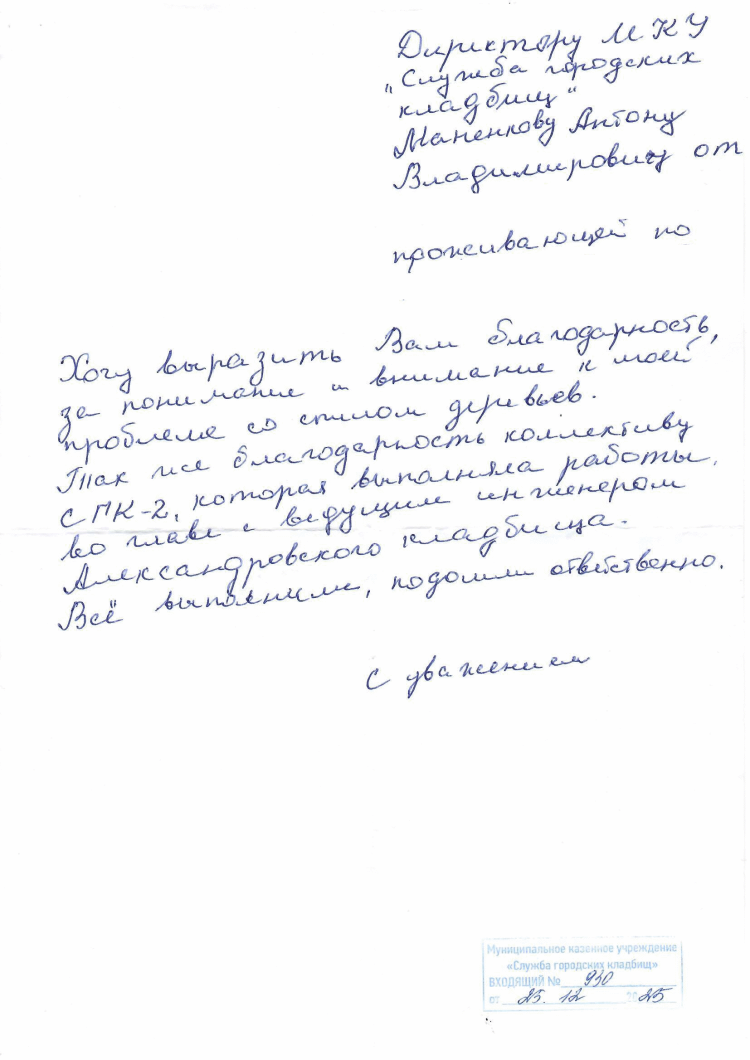 Директору МКУ
"Служба городских
кладбищ"
Маненкову Антону
Владимировичу от
проживающей по
Хочу выразить Вам благодарность,
за понимание и внимание к моей
проблеме со спилом деревьев.
Так же благодарность коллективу
СПК-2, которая выполняла работы,
во главе с ведущим инженером
Александровского кладбища.
Всё выполнили, подошли ответственно.
С уважением
Муниципальное казенное учреждение
«Служба городских кладбищ»
ВХОДЯЩИЙ № 930
от 25. 12 2025